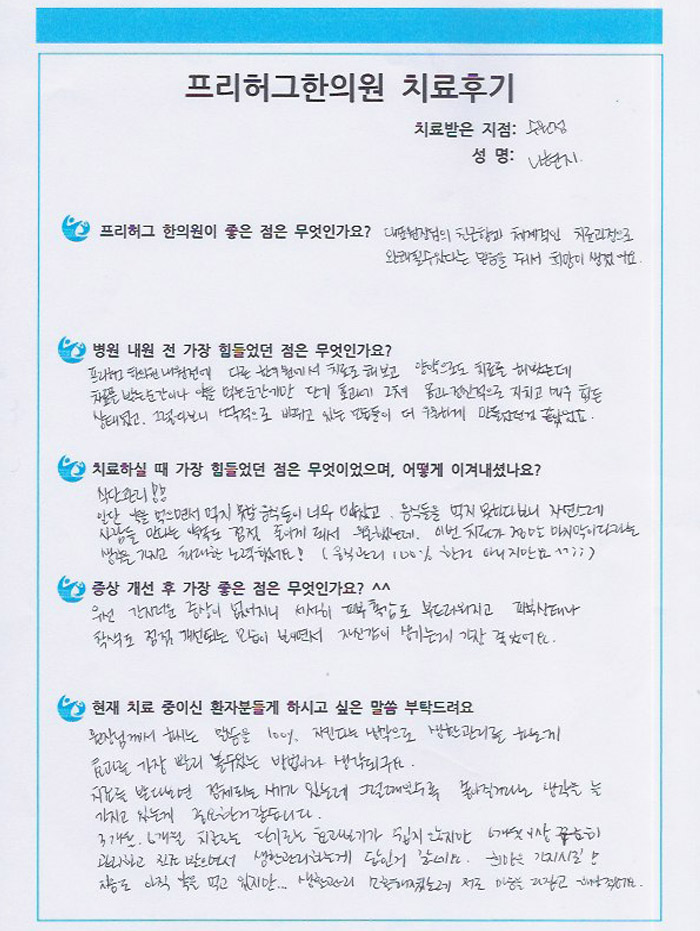 프리허그한의원 치료후기
치료받은 지점: 수원점
성 명: 나현지.
프리허그 한의원이 좋은 점은 무엇인가요? 대표원장님의 친근함과 체계적인 치료과정으로
완쾌될수있다는 말씀을 해서 희망이 생겼어요.
병원 내원 전 가장 힘들었던 점은 무엇인가요?
프리허그 한의원 내원전에 다른 한의원에서 치료도 해보고 양약으로도 치료를 해봤는데
치료를 받는순간이나 약을 먹는순간에만 단기 효과에 그쳐 몸과 정신적으로 지치고 매우 힘든
상태였고, 그렇다보니 부정적으로 바뀌고 있는 모습들이 더 우울하게 만들었던것 같았어요.
치료하실 때 가장 힘들었던 점은 무엇이었으며, 어떻게 이겨내셨나요?
식단관리!!
일단 약을 먹으면서 먹지 못할 음식들이 너무 많았고, 음식들을 먹지 못하다보니 자연스레
사람들 만나는 약속도 점점 줄어들게 되서 우울했는데, 이번 치료가 정말 마지막이다라는
생각을 가지고 최대한 노력했어요! (음식관리 100% 한건 아니지만요 ^^;;)
증상 개선 후 가장 좋은 점은 무엇인가요? ^^
우선 간지러운 증상이 없어지니 서서히 피부촉감도 부드러워지고 피부상태나
착색도 점점 개선되는 모습이 보이면서 자신감이 생기는게 가장 좋았어요.
현재 치료 중이신 환자분들게 하시고 싶은 말씀 부탁드려요
원장님께서 하시는 말씀을 100% 지킨다는 생각으로 생활관리를 하는게
효과를 가장 빨리 볼수있는 방법이라 생각되구요.
치료를 받다보면 정체되는 시기가 있는데 그럴때일수록 좋아질거라는 생각을 늘
가지고 있는게 중요한거같습니다.
3개월, 6개월 치료로는 단기로는 효과보기가 쉽지 않지만 6개월이상 꾸준히
관리하고 진료 받으면서 생활관리하는게 답인거 같아요. 희망을 가지시길!
지금도 아직 약을 먹고 있지만... 생활관리 소홀해졌는데 저도 마음을 다잡고